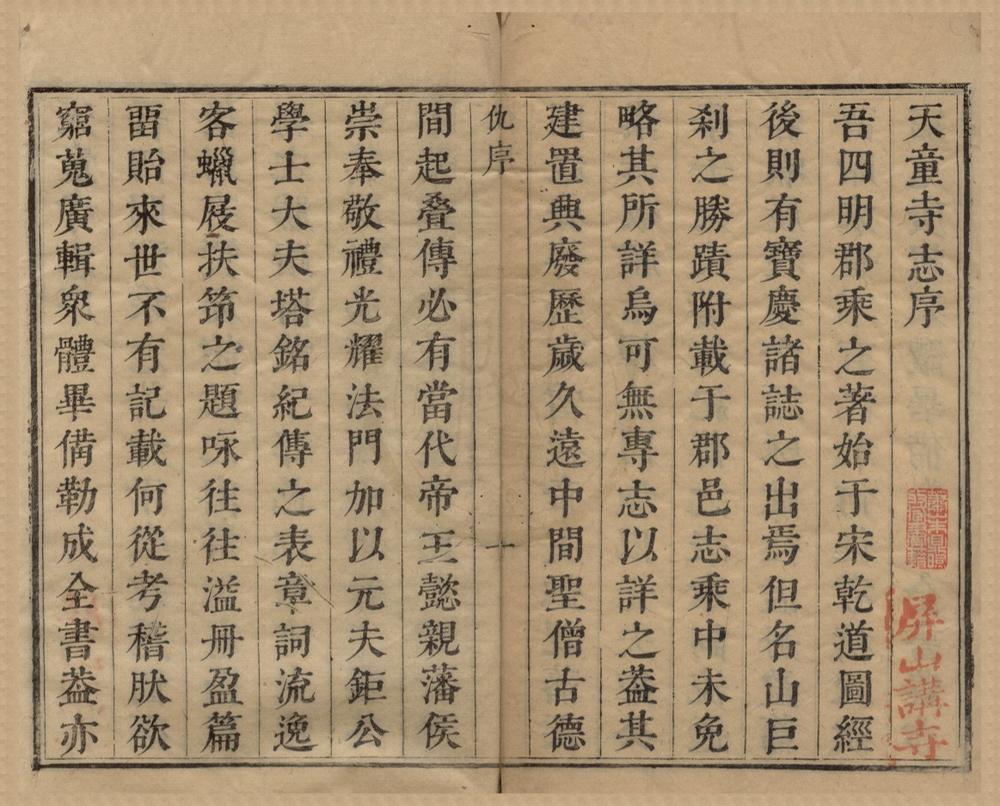 天童寺志序
屏山講寺
吾四明郡乘之著始于宋乾道圖經
後則有寶慶諸誌之出焉但名山巨
剎之勝蹟附載于郡邑志乘中未免
略其所詳烏可無專志以詳之葢其
建置興廢歷歲久遠中間聖僧古德
仇序
一
間起叠傳必有當代帝王懿親藩侯
崇奉敬禮光耀法門加以元夫鉅公
學士大夫塔銘紀傳之表章詞流逸
客蠟屐扶笻之題咏往往溢冊盈篇
畱貽來世不有記載何從考稽肰欲
窮蒐廣輯衆體畢俻勒成全書葢亦